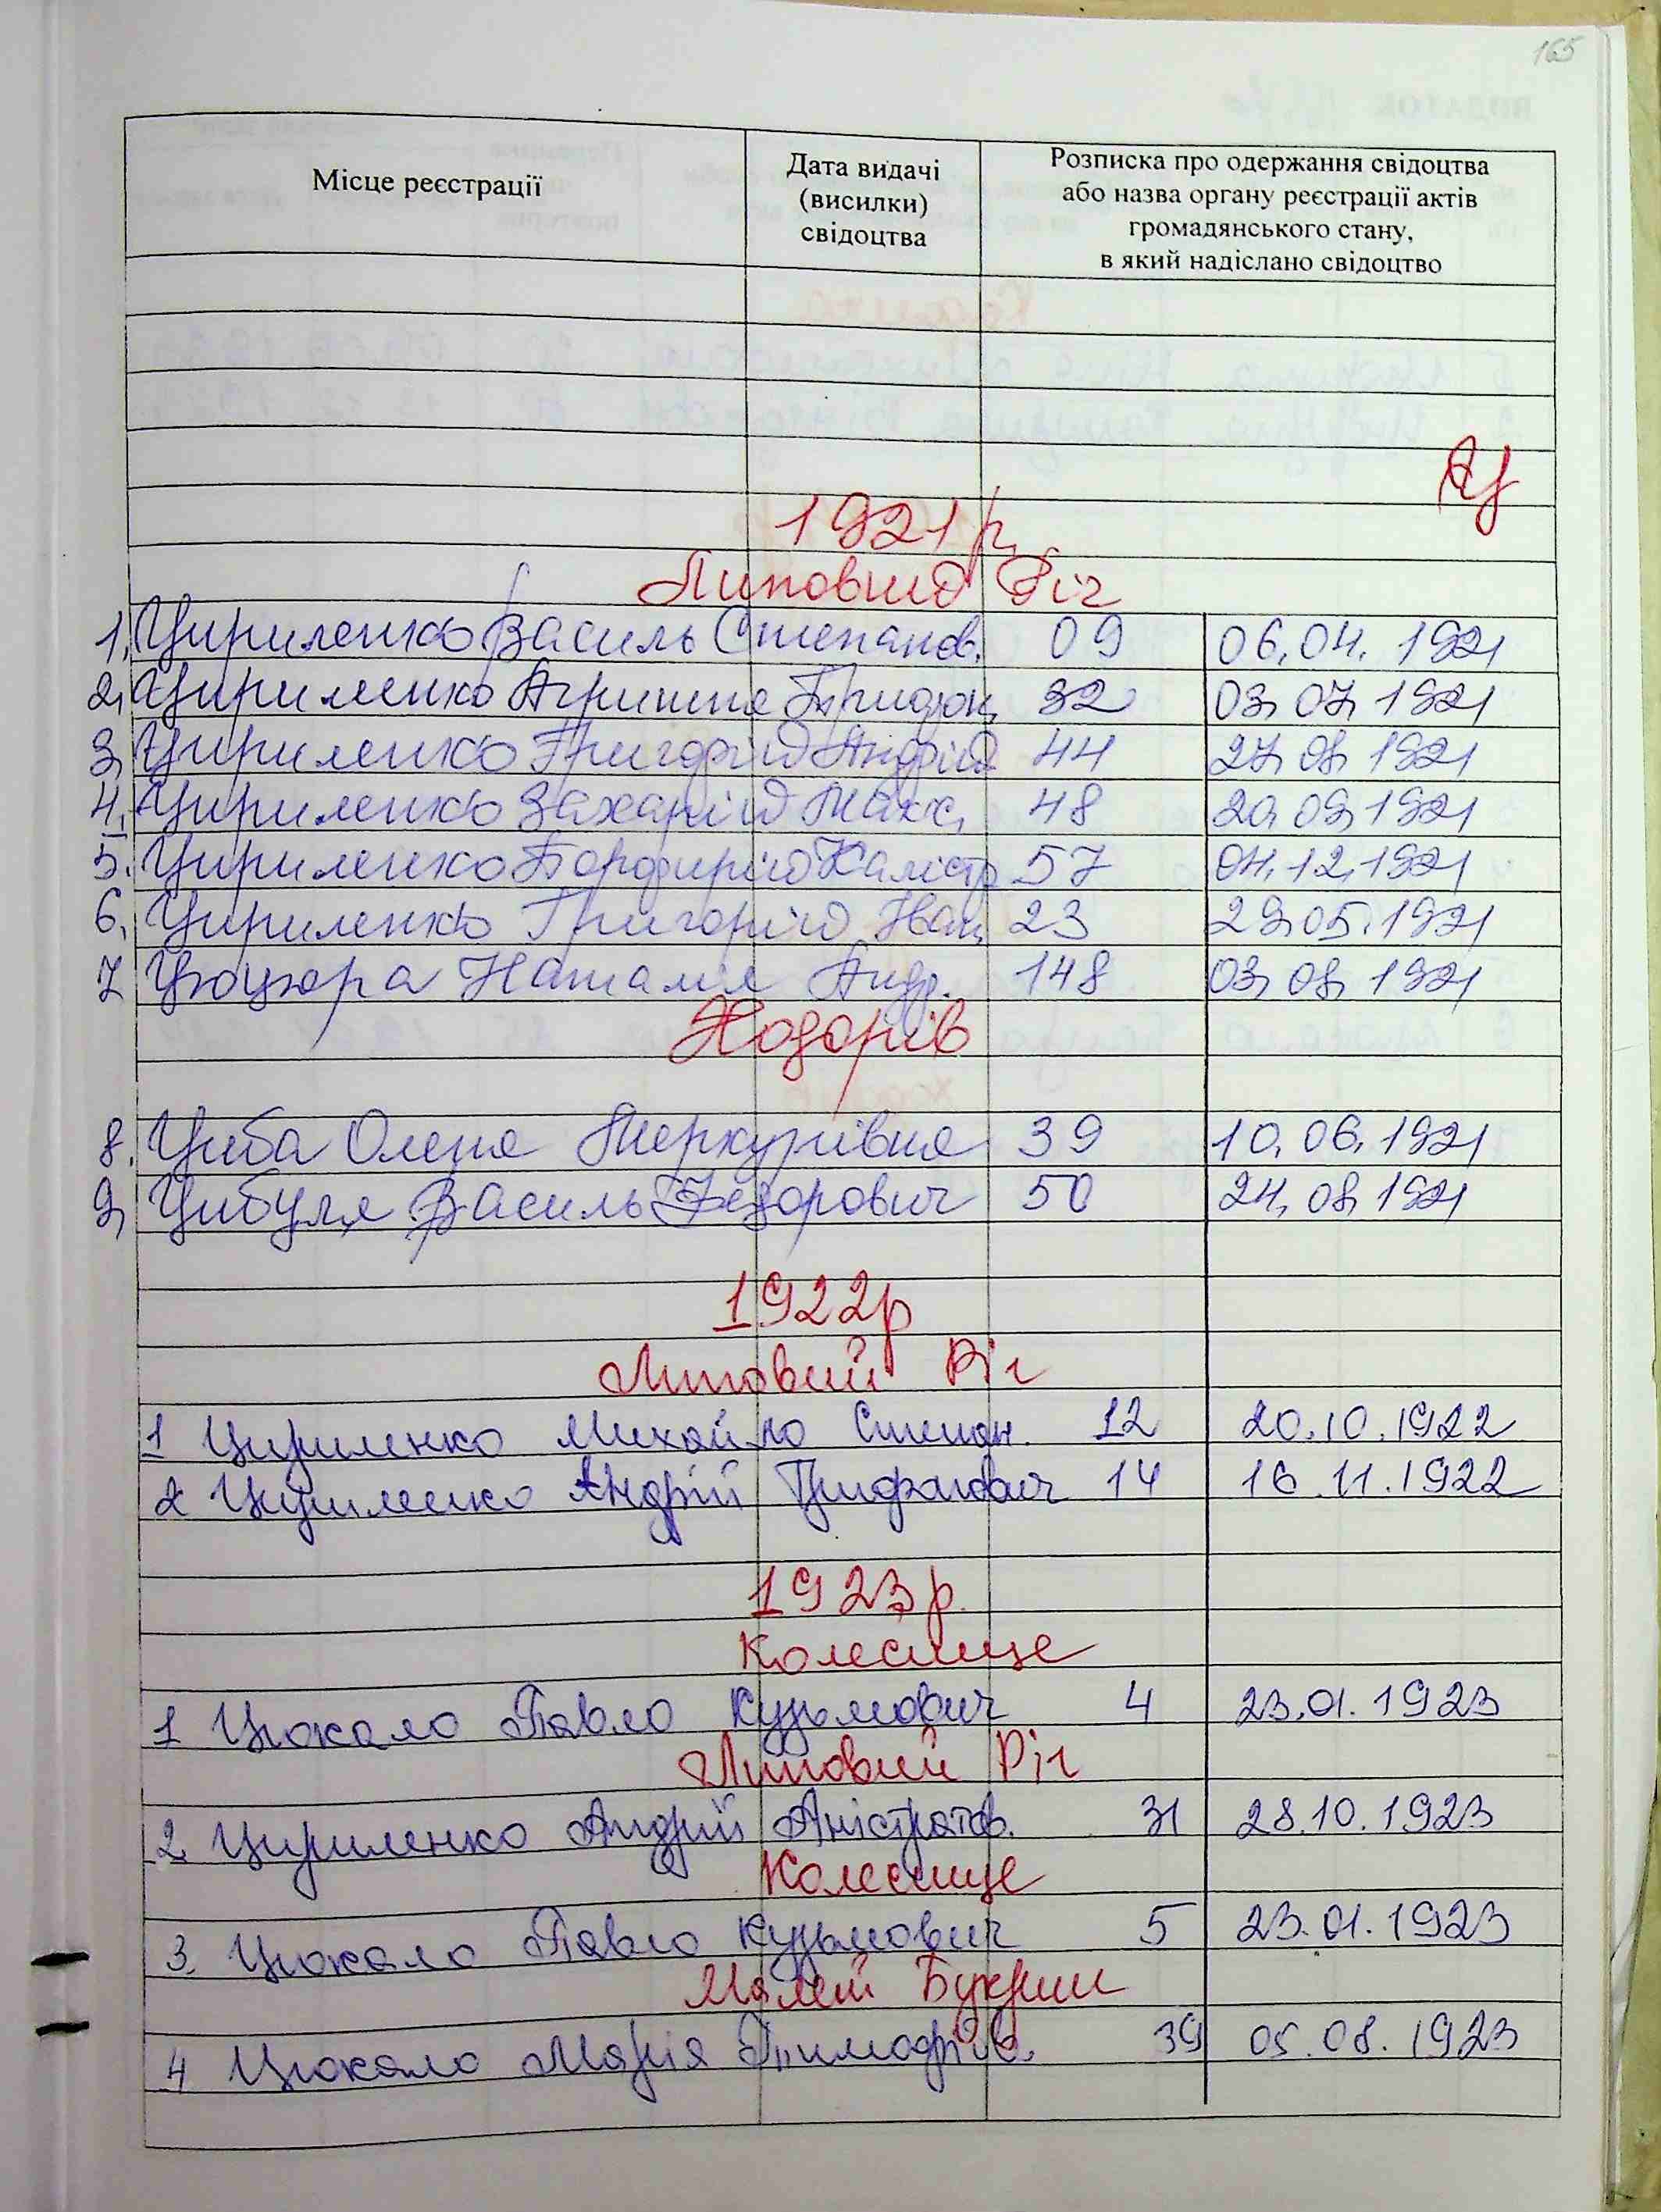 165
Місце реєстрації
Дата видачі
(висилки)
свідоцтва
Розписка про одержання свідоцтва
або назва органу реєстрації актів
громадянського стану,
в який надіслано свідоцтво
1921р.
Липовий Ріг
1. Цириленко Василь Степанов. 09 06.04.1921
2. Цириленко 32 03.07.1921
3. Цириленко Григорій Андрій 44 27.08.1921
4. Цириленко Захарій Макс. 48 20.09.1921
5. Цириленко Порфирій Калістр 57 04.12.1921
6. Цириленко Григорій Іван. 23 29.05.1921
7. Цюцюра Наталія Андр. 148 03.08.1921
Ходорів
8. Циба Олена Меркуріївна 39 10.06.1921
9. Цибуля Василь Федорович 50 24.08.1921
1922р
Липовий Ріг
1 Цириленко Михайло Степан. 12 20.10.1922
2 Цириленко Андрій 14 16.11.1922
1923р.
Колесище
1 Цюкало Павло Кузьмович 4 23.01.1923
Липовий Ріг
2. Цириленко Андрій Аністратов. 31 28.10.1923
Колесище
3. Цюкало Павло Кузьмович 5 23.01.1923
Малий Букрин
4 Цюкало Марія Тимофіїв. 39 05.08.1923